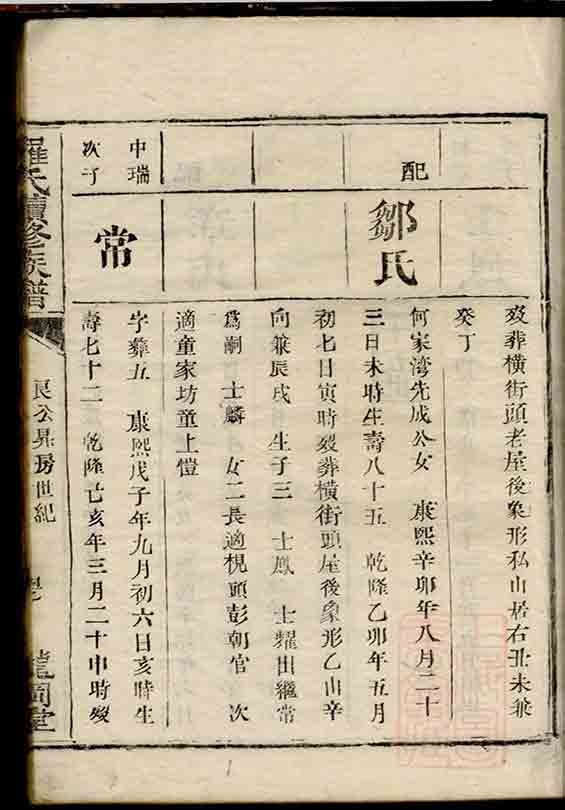 歿葬橫街頭老屋後象形私山居右丑未兼
癸丁
配
鄒氏
何家湾先成公女 康熙辛卯年八月二十
三日未時生壽八十五 乾隆乙卯年五月
初七日寅時歿葬橫街頭屋後象形乙山辛
向兼辰戌 生子三 士鳳 士耀出繼常
為嗣 士麟 女二長適梘頭彭朝官 次
適童家坊童上愷
中瑞
次子
常
字彝五 康熙戊子年九月初六日亥時生
壽七十二 乾隆己亥年三月二十申時歿
羅氏續修族譜
良公昇房世紀
龍岡堂